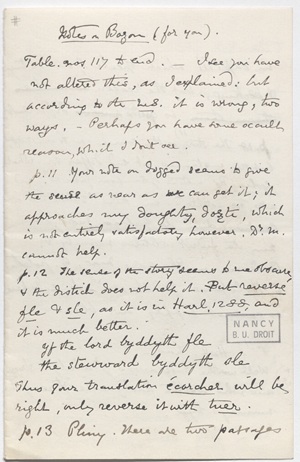 #
Notes on Bozon (for you).
Table. nos 117 to end. – I see you have
not altered this, as I explained: but
according to the ms. it is wrong, two
ways. – Perhaps you have some occult
reason, wh. I don't see.
p. 11 Your note on dogged seems to give
the sense as near as we can get it; it
approaches my doughty, which
is not entirely satisfactory however, Dr. M.
cannot help.
p. 12 The sense of the story seems to me obscure,
& the distich does not help it. But reverse
fle & sle, as it is in Harl. 1288, and
it is much better.
yf the lord byddyth fle
the steward byddyth sle
Thus your translation écorcher will be
right, only reverse it with tuer.
p. 13 Pliny. There are two passages
NANCY
B. U. DROIT